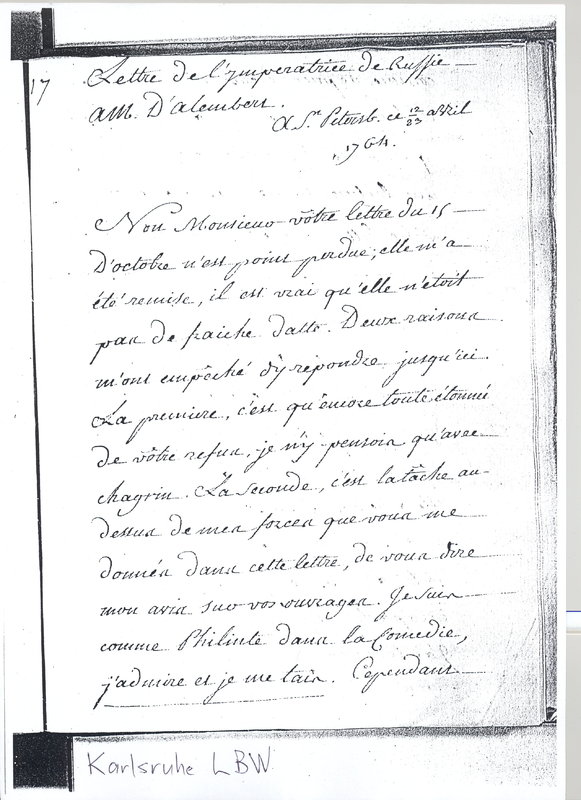 17
Lettre de l'Imperatrice de Russie
a M. D'alembert.
a St. Petersb. ce 12/23 avril
1764.
Non Monsieur vôtre lettre du 15
D'octobre n'est point perdue; elle m'a
été remise, il est vrai qu'elle n'étoit
pas de fraiche datte. Deux raisons
m'ont empêché d'y répondre jusqu'ici.
La premiere, c'est qu'encore toute étonné
de vôtre refus, je n'y pensois qu'avec
chagrin. La seconde, c'est la tâche au-
dessus de mes forces que vous me
donnés dans cette lettre, de vous dire
mon avis sur vos ouvrages. Je suis
comme Philinte dans la Comedie,
j'admire et je me tais. Cependant
Karlsruhe LBW